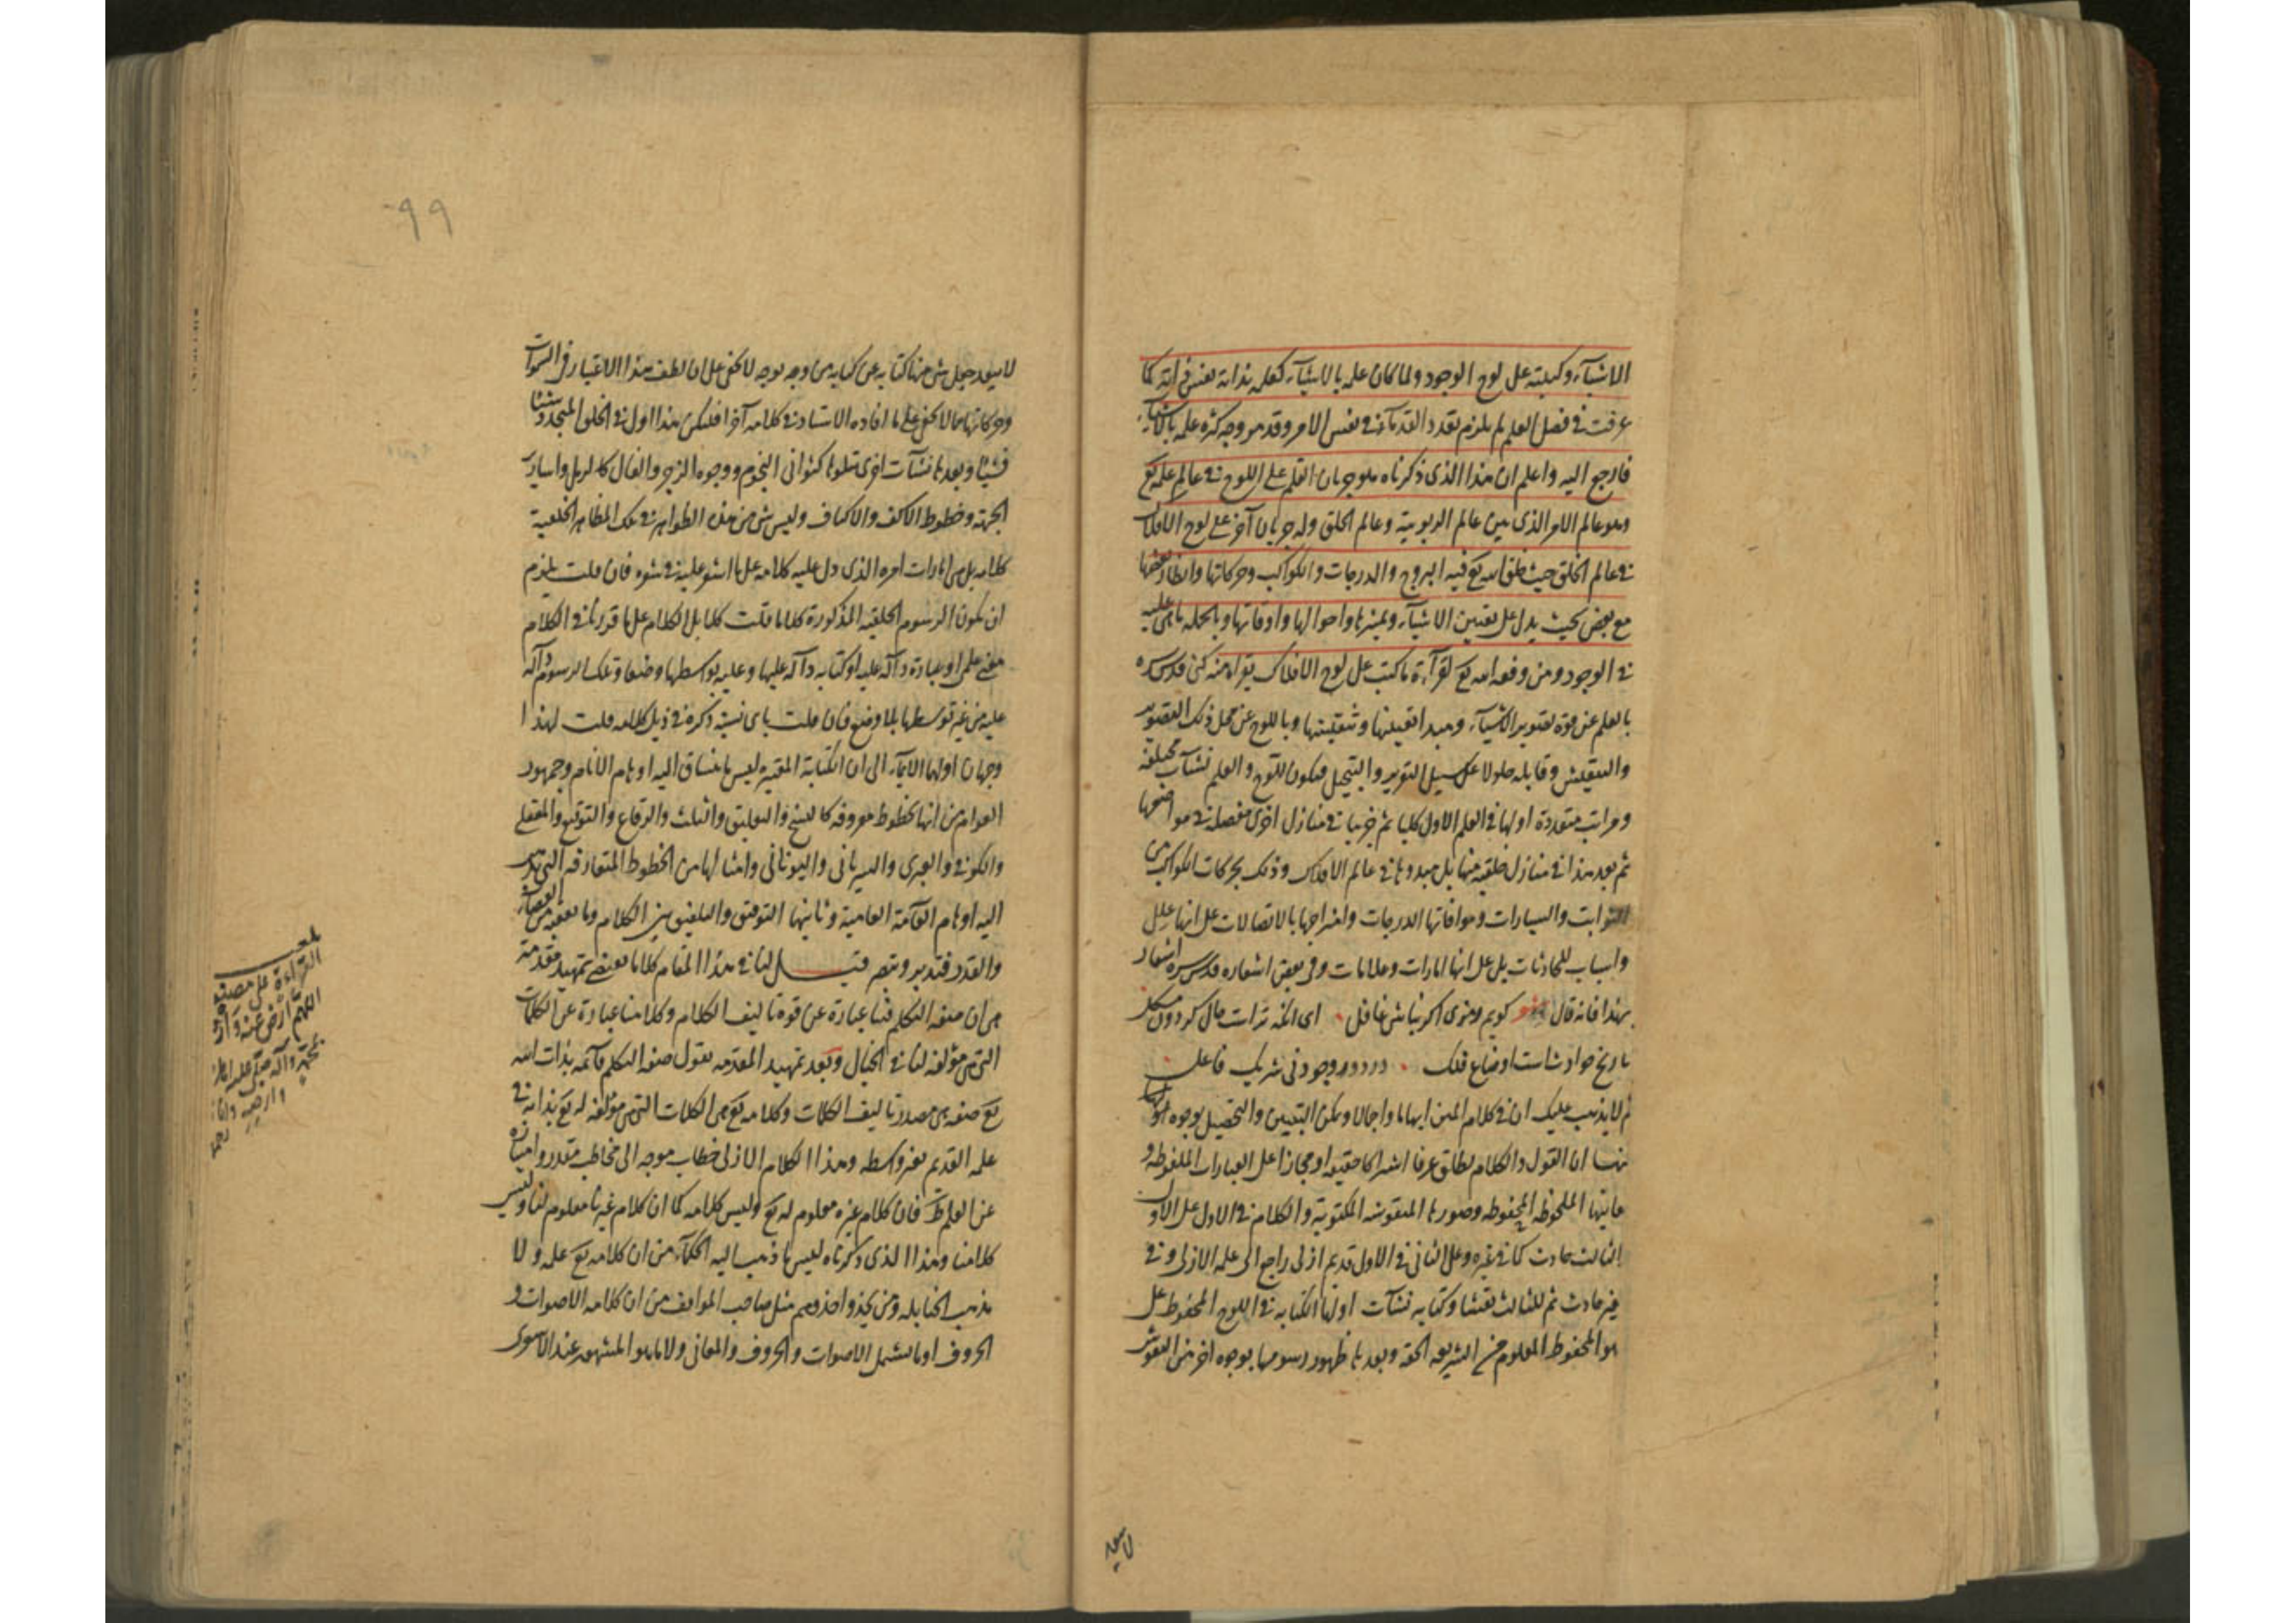 الاشيآء وكيلته على لوح الوجود ولما كان علمه بالاشيآء كعلمه بذاته نفس ذاته كما
عرفت في فصل العلم لم يلزم تعدد القدمآء في نفس الامر وقد مر وجه كثرة علمه بالاشيآء
فارجع اليه واعلم ان هذا الذى ذكرناه هو جريان القلم على اللوح في عالم علمه تع
وهو عالم الامر الذى بين عالم الربوبية وعالم الخلق وله جريان آخر على لوح الافلاك
في عالم الخلق حيث خلق الله تع فيه البروج والدرجات والكواكب وحركاتها وانظار بعضها
مع بعض بحيث يدل على تعيين الاشيآء وتميزها واحوالها واوقاتها وبالجملة ما هى عليه
في الوجود ومن وفقه الله تع لقرآءة ما كتب على لوح الافلاك يقراه منه كنى قدس سره
بالقلم عن قوة تصوير الاشيآء ومبدا تفصيلها وباللوح عن محل ذلك التصوير
والتنقيش وقابله حلولا على سبيل فيكون للوح والقلم نشآت مختلفة
ومراتب متعددة اولها في القلم الاول كليا ثم في منازل اخرى مفصلة في مواضعها
ثم بعد هذا في منازل خلقية منها بل مبدوها في عالم الافلاك وذلك بحركات الكواكب من
الثوابت والسيارات وموافاتها الدرجات وامتزاجها بالاتصالات على انها علل
واسباب للحادثات بل على انها امارات وعلامات وفى بعض اشعاره قدس سره اشعار
بهذا فانه قال شعر كويم رمزى اكر نباشى غافل اى انكه تراست حال كردون مشكل
تاريخ حوادث است اوضاع فلك در دور وجود نى شريك فاعل
ثم لا يذهب عليك ان في كلام المتن ابهاما واجمالا ويمكن التبيين والتفصيل بوجوه
منها ان القول والكلام يطلق عرفا اشتراكا حقيقة او مجازا على العبارات الملفوظة و
معانيها الملحوظة المحفوظة وصورها المنقوشة المكتوبة والكلام في الاول على الاول
الثالث حادث كما في غيره وعلى الثانى في الاول قديم ازلى راجع الى علمه الازلى وفي
غيره حادث ثم للثالث نقشا وكتابة نشآت اولها الكتابة في اللوح المحفوظ على
هو المحفوظ المعلوم من الشريعة الحقة وبعدها ظهور رسومها بوجوه اخر من النقوش
لا يبعد
٩٩
لا يبعد جعل شئ منها كتابة عن كتابة من وجه بوجه لا يخفى على ان لطف هذا الاعتبار في السموات
وحركاتها مما لا يخفى على ما افاده الاستاد في كلامه آخرا فليكن هذا اول في الخلق المتجدد شيئا
فشيئا وبعدها نشآت اخرى تتلوها كثوانى النجوم ووجوه الزجر والفال كالرمل واسارير
الجبهة وخطوط الاكف والاكتاف وليس شئ من هذه الظواهر في تلك المظاهر الخلقية
كلامه بل من امارات امره الذى دل عليه كلامه على ما اشير عليه في شعره فان قلت يلزم
ان يكون الرسوم الخلقية المذكورة كلاما قلت كلا بل الكلام على ما قررنا في الكلام
معنى علمى او عبارة دآلة عليه او كتابة دآلة عليها وعليه بواسطها وضعا وتلك الرسوم دآلة
عليه من غير توسطها بلا وضع فان قلت باى نسبة ذكره في ذيل كلامه قلت لهذا
وجهان اولهما الايمآء الى ان الكتابة المعتبرة ليس ما ينساق اليه اوهام الانام وجمهور
العوام من انها بخطوط معروفة كالنسخ والتعليق والثلث والرقاع والتوقيع والمحقق
والكوفى والعبرى والسريانى واليونانى وامثالها من الخطوط المتعارفة التى
اليه اوهام العآمة العامية وثانيها التوفيق والتلفيق بين الكلام وما يعقبه من القضاء
والقدر فتدبر وتبصر قيل لنا في هذا المقام كلام يقتضى تمهيد مقدمة
هى ان صفة التكلم فينا عبارة عن قوة تاليف الكلام وكلامنا عبارة عن الكلمات
التى هى مؤلفة لنا في الخيال وبعد تمهيد المقدمة نقول صفة التكلم قآئمة بذات الله
تع صفة هى مصدر تاليف الكلمات وكلامه تع هى الكلمات التى هى مؤلفة له تع بذاته في
علمه القديم بغير واسطة وهذا الكلام الازلى خطاب موجه الى مخاطب مقدر وامتيازه
عن العلم ظ فان كلام غيره معلوم له تع وليس كلامه كما ان كلام غيرنا معلوم لنا وليس
كلامنا وهذا الذى ذكرناه ليس ما ذهب اليه الحكمآء من ان كلامه تع علمه ولا
مذهب الحنابلة ومن يحذو حذوهم مثل صاحب المواقف من ان كلامه الاصوات و
الحروف او ما يشمل الاصوات والحروف والمعانى ولا ما هو المشهور عند الاشعرى
بلغت
القراءة على مصنفه
اللهم ارض عنه وارضه
بمحمد وآله صلى عليه